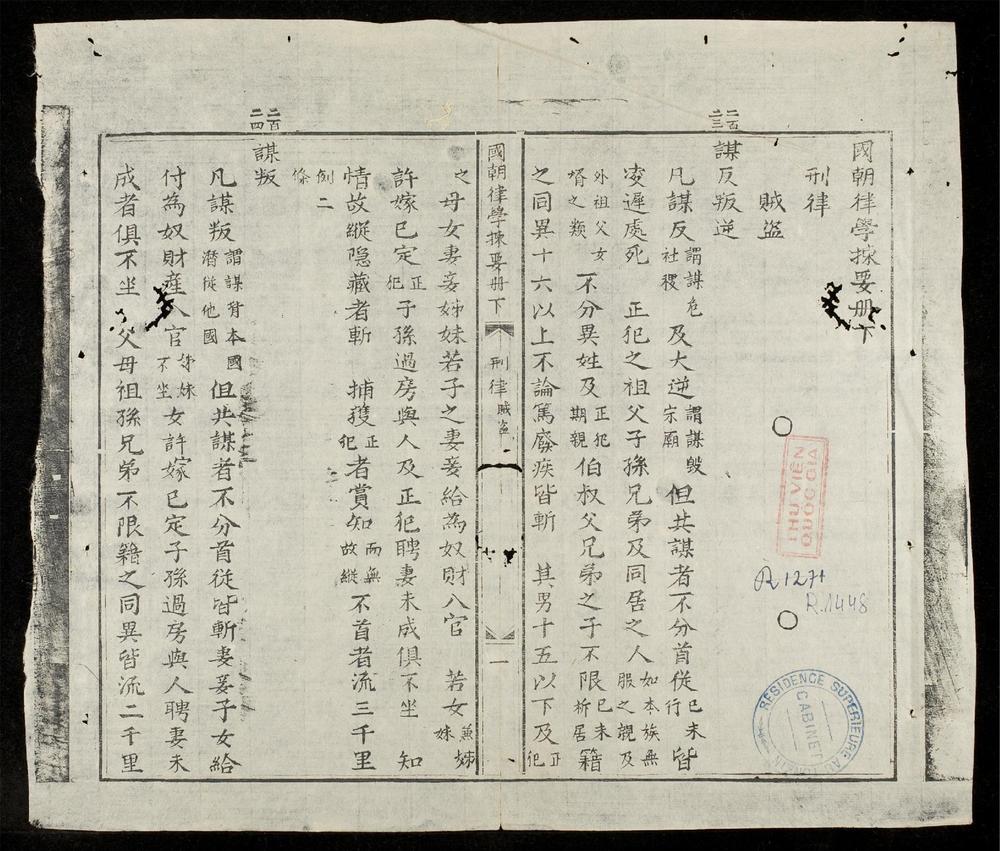 國朝律學揀要册下
刑律
賊盜
二百二三
謀反叛逆
凡謀反謂謀危社稷及大逆謂謀毀宗廟但共謀者不分首從已未行皆
凌遲處死 正犯之祖父子孫兄弟及同居之人如本族無服之親及
外祖父女婿之類不分異姓及正犯期親伯叔父兄弟之子不限已未析居籍
之同異十六以上不論篤廢疾皆斬 其男十五以下及正犯
國朝律學揀要册下 刑律 賊盜 一
之母女妻妾姊妹若子之妻妾給為奴財入官 若女兼姊妹
許嫁已定正犯子孫過房與人及正犯聘妻未成俱不坐 知
情故縱隐藏者斬 捕獲正犯者賞知而無故縱不首者流三千里
例二條
二百二四
謀叛
凡謀叛謂謀背本國潛從他國但共謀者不分首從皆斬妻妾子女給
付為奴財產入官姊妹不坐女許嫁已定子孫過房與人聘妻未
成者俱不坐 父母祖孫兄弟不限籍之同異皆流二千里
THƯ VIỆN
QUỐC GIA
R 1271
R.1448
RÉSIDENCE SUPÉRIEURE AU TONKIN
CABINET